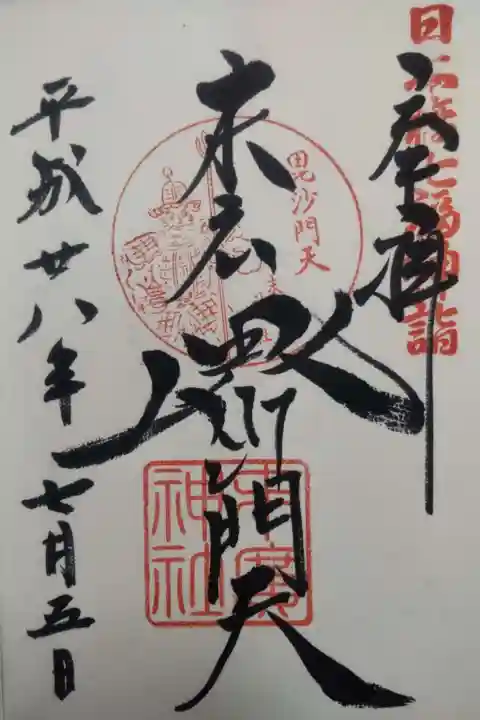 日本橋七福神詣
奉拝
毘沙門天
末広
毘沙門天
末廣神社
平成廿八年七月五日